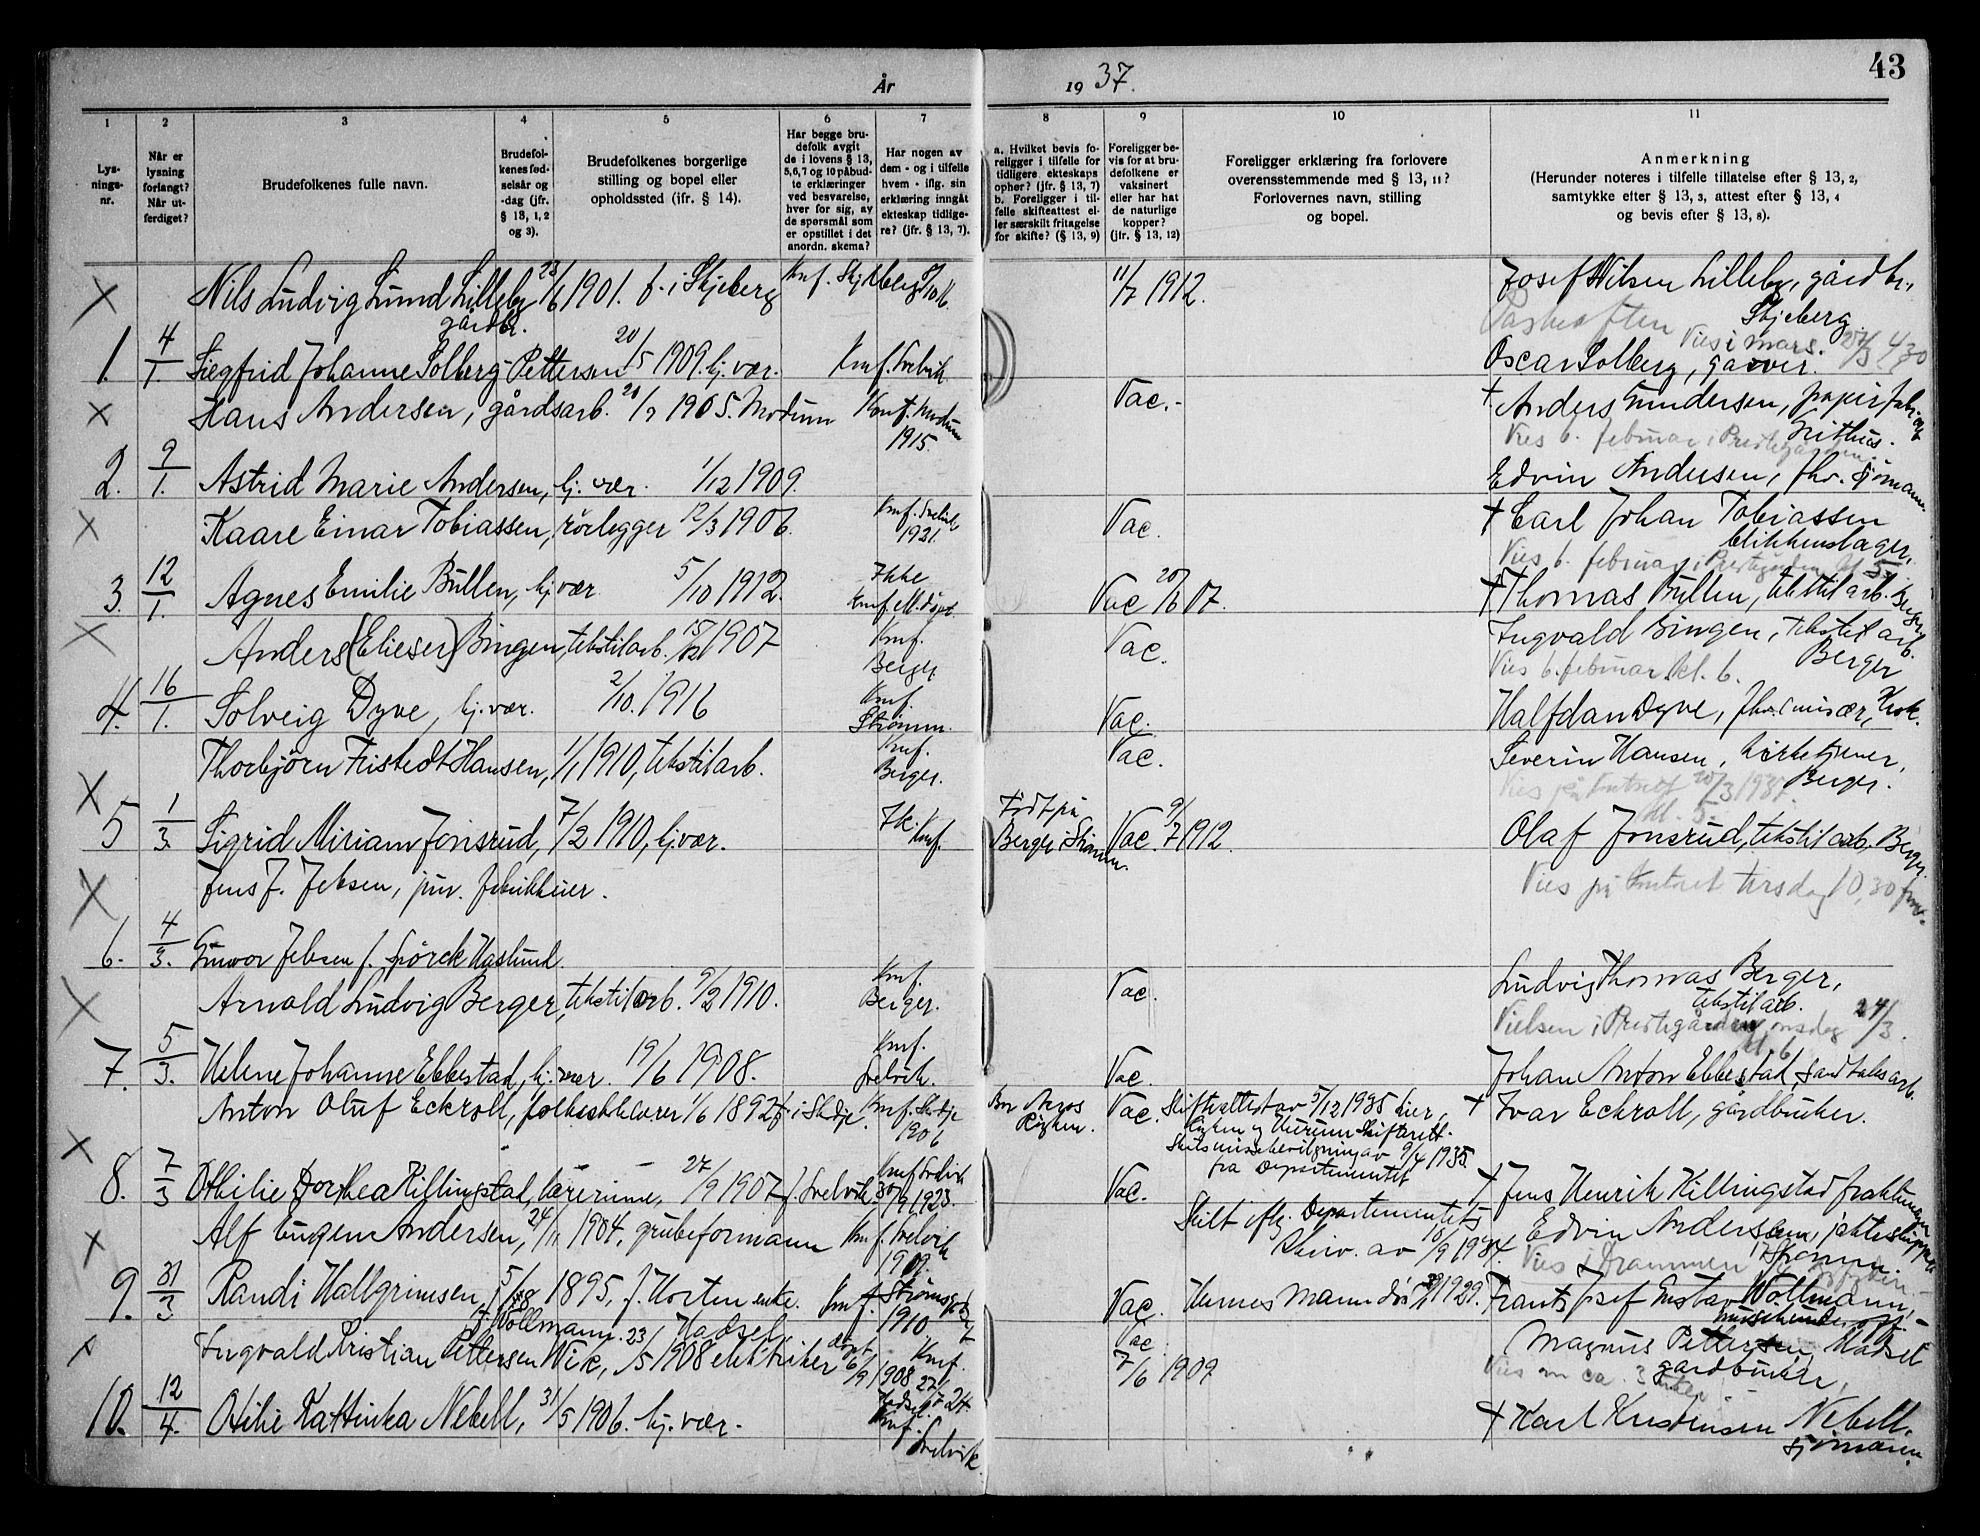 43
År 1937.
1 2 3 4 5 6 7 8 9 10 11
Lysningsnr.
Når er lysning forlangt? Når utferdiget?
Brudefolkenes fulle navn.
Brudefolkenes fødselsår og -dag (jfr. § 13, 1, 2 og 3).
Brudefolkenes borgerlige stilling og bopel eller opholdssted (jfr. § 14).
Har begge brudefolk avgit de i lovens § 13, 5, 6, 7 og 10 påbudte erklæringer ved besvarelse, hver for sig, av de spørsmål som er opstillet i det anordn. skema?
Har nogen av dem - og i tilfelle hvem - iflg. sin erklæring inngåt ekteskap tidligere? (jfr. § 13, 7).
a. Hvilket bevis foreligger i tilfelle for tidligere ekteskaps ophør? (jfr. § 13, 7) b. Foreligger i tilfelle skifteattest eller særskilt fritagelse for skifte? (§ 13, 9)
Foreligger bevis for at brudefolkene er vaksinert eller har hat de naturlige kopper? (jfr. § 13, 12)
Foreligger erklæring fra forlovere overensstemmende med § 13, 11? Forlovernes navn, stilling og bopel.
Anmerkning (Herunder noteres i tilfelle tillatelse efter § 13, 2, samtykke efter § 13, 3, attest efter § 13, 4 og bevis efter § 13, 8).
X Nils Ludvig Lund Lilleby 23/6 1901. f. i Skjeberg Knf. Skjeberg 11/7 1912. Josef Nilsen Lilleby, gårdbr.,
gårdbr. Skjeberg
Vies i mars.
1. 4/1. Siegfrid Johanne Solberg-Pettersen 20/5 1909. hj. vær. Knf. Svelvik Oscar Solberg, garver.
X Hans Andersen, gårdsarb. 1905. Modum Konf. Modum 1915. Vac.- † Anders Gundersen, papirfabr.
Vies 6. februar i Prestegården.
2. 9/1. Astrid Marie Andersen, hj. vær. 1/12 1909. Edvin Andersen, fhv. sjömann
X Kaare Einar Tobiassen, rörlegger 12/3 1906. Knf. Svelvik 1921. Vac. † Carl Johan Tobiassen
blikkenslager,
Vies 6. februar i Prestegården kl. 5.
3. 12/1. Agnes Emilie Bullen, hj. vær. 5/10 1912. Ikke Knf. Vac 07. † Thomas Bullen, tekstilarb. Berger
X Anders (Elieser) Bingen, tekstilarb. 15/12 1907 Knf. Berger. Vac. Ingvald Bingen, tekstilarb.
Berger
Vies 6. februar. kl. 6.
4. 16/1. Solveig Dyve, hj. vær. 2/10. 1916 Knf. Strömm. Vac. Halfdan Dyve,
X Thorbjörn Fristedt Hansen, 1/1 1910, tekstilarb. Knf. Berger. Vac. Severin Hansen, kirketjener,
Berger.
Vies på kontoret 20/3 1937.
kl. 5.
5 1/3. Sigrid Miriam Jonsrud, 7/2 1910, hj. vær. Ik. Knf. Födt på Berger i Strömm. Vac. 9/7 1912. Olaf Jonsrud, tekstilarb. Berger.
X Jens J. Jebsen, jun. fabrikkeier. Vies på kontoret tirsdag 10,30 form.
6. 4/3. Gunvor Jebsen f. Haslund
X Arnold Ludvig Berger, tekstilarb. 9/2 1910. Knf. Berger. Vac. Ludvig Thomas Berger,
tekstilarb.
Vielsen i Prestegården onsdag 24/3.
kl. 6
7. 5/3. Helene Johanne Ebbestad, hj. vær. 19/6 1908. Knf. Svelvik. Vac. Johan Anton Ebbestad, sandtaksarb.
X Anton Oluf Eckroll, folkeskolelærer 1/6 1892 f. i Skodje. Knf. Skodje 1906 Bor Åros Röyken. Vac. Skifteattest av 5/12 1935 hier, † Ivar Eckroll, gårdbruker.
Röyken og Hurum Skifterett.
Skilsmissebevilgning av 9/4 1935.
fra Departementet
8. 7/3 Othilie Dorthea Killingstad, lærerinne, 27/9 1907 f. Svelvik. Knf. Svelvik 30/9 1923. Vac. † Jens Henrik Killingstad fraktemann
X Alf Eugen Andersen, 24/11 1904, grubeformann Knf. Svelvik 1919. Skilt iflg. Departementets Skriv. av 10/9 1934. Edvin Andersen, jakteskipper
Strömm.
Vies i Drammen
9. 31/3 Randi Hallgrimsen, 1895, f. Horten enke. Knf. Strömsgodset 1910 Vac. Hennes mann död 1929. Frantz Josef Gustav Wollmann,
f. Vollmann. Hadsel
X Ingvald Kristian Pettersen Wik, 23/5 1908 elektriker döpt 6/9 1908 Knf. Hadsel 24. Vac 7/6 1909 Magnus Pettersen, Hadsel
gårdbruker,
Vies om ca. 3 uker
10. 12/4. Otilie Kattinka Nebell, 31/5 1906. hj. vær. Knf. Svelvik † Karl Kristensen Nebell.
sjömann.